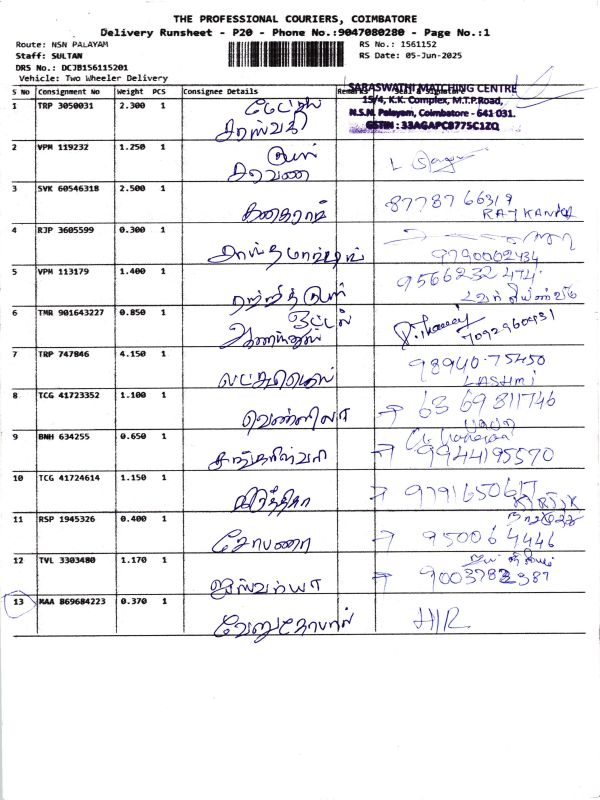 THE PROFESSIONAL COURIERS, COIMBATORE
Delivery Runsheet - P20 - Phone No.:9047080280 - Page No.:1
Route: NSN PALAYAM RS No.: 1561152
Staff: SULTAN RS Date: 05-Jun-2025
DRS No.: DCJB156115201
Vehicle: Two Wheeler Delivery
S No Consignment No Weight PCS Consignee Details Remarks Seal & Signature
SARASWATHI MATCHING CENTRE
15/4, K.K. Complex, M.T.P.Road,
N.S.N. Palayam, Coimbatore - 641 031.
GSTIN : 33AGAPC8775C1ZQ
1 TRP 3050031 2.300 1
சரஸ்வதி
2 VPM 119232 1.250 1
சரவண
3 SVK 60546318 2.500 1 87787 66319
RAJKANNA
4 RJP 3605599 0.300 1
9790062434
5 VPM 113179 1.400 1 9566232474
6 TMR 901643227 0.850 1 ஓட்டல்
7092960431
7 TRP 747846 4.150 1 98940.75450
LASHMI
8 TCG 41723352 1.100 1 → 6369311746
வெண்ணிலா
9 BNH 634255 0.650 1 → 9944195570
10 TCG 41724614 1.150 1 → 9791650617
கிர்த்திகா KIRTIK
11 RSP 1945326 0.400 1 → 950064446
சோபனா
12 TVL 3303480 1.170 1 → 9003782387
ஐஸ்வர்யா
13 MAA 869684223 0.370 1 H/R
வேணுகோபால்